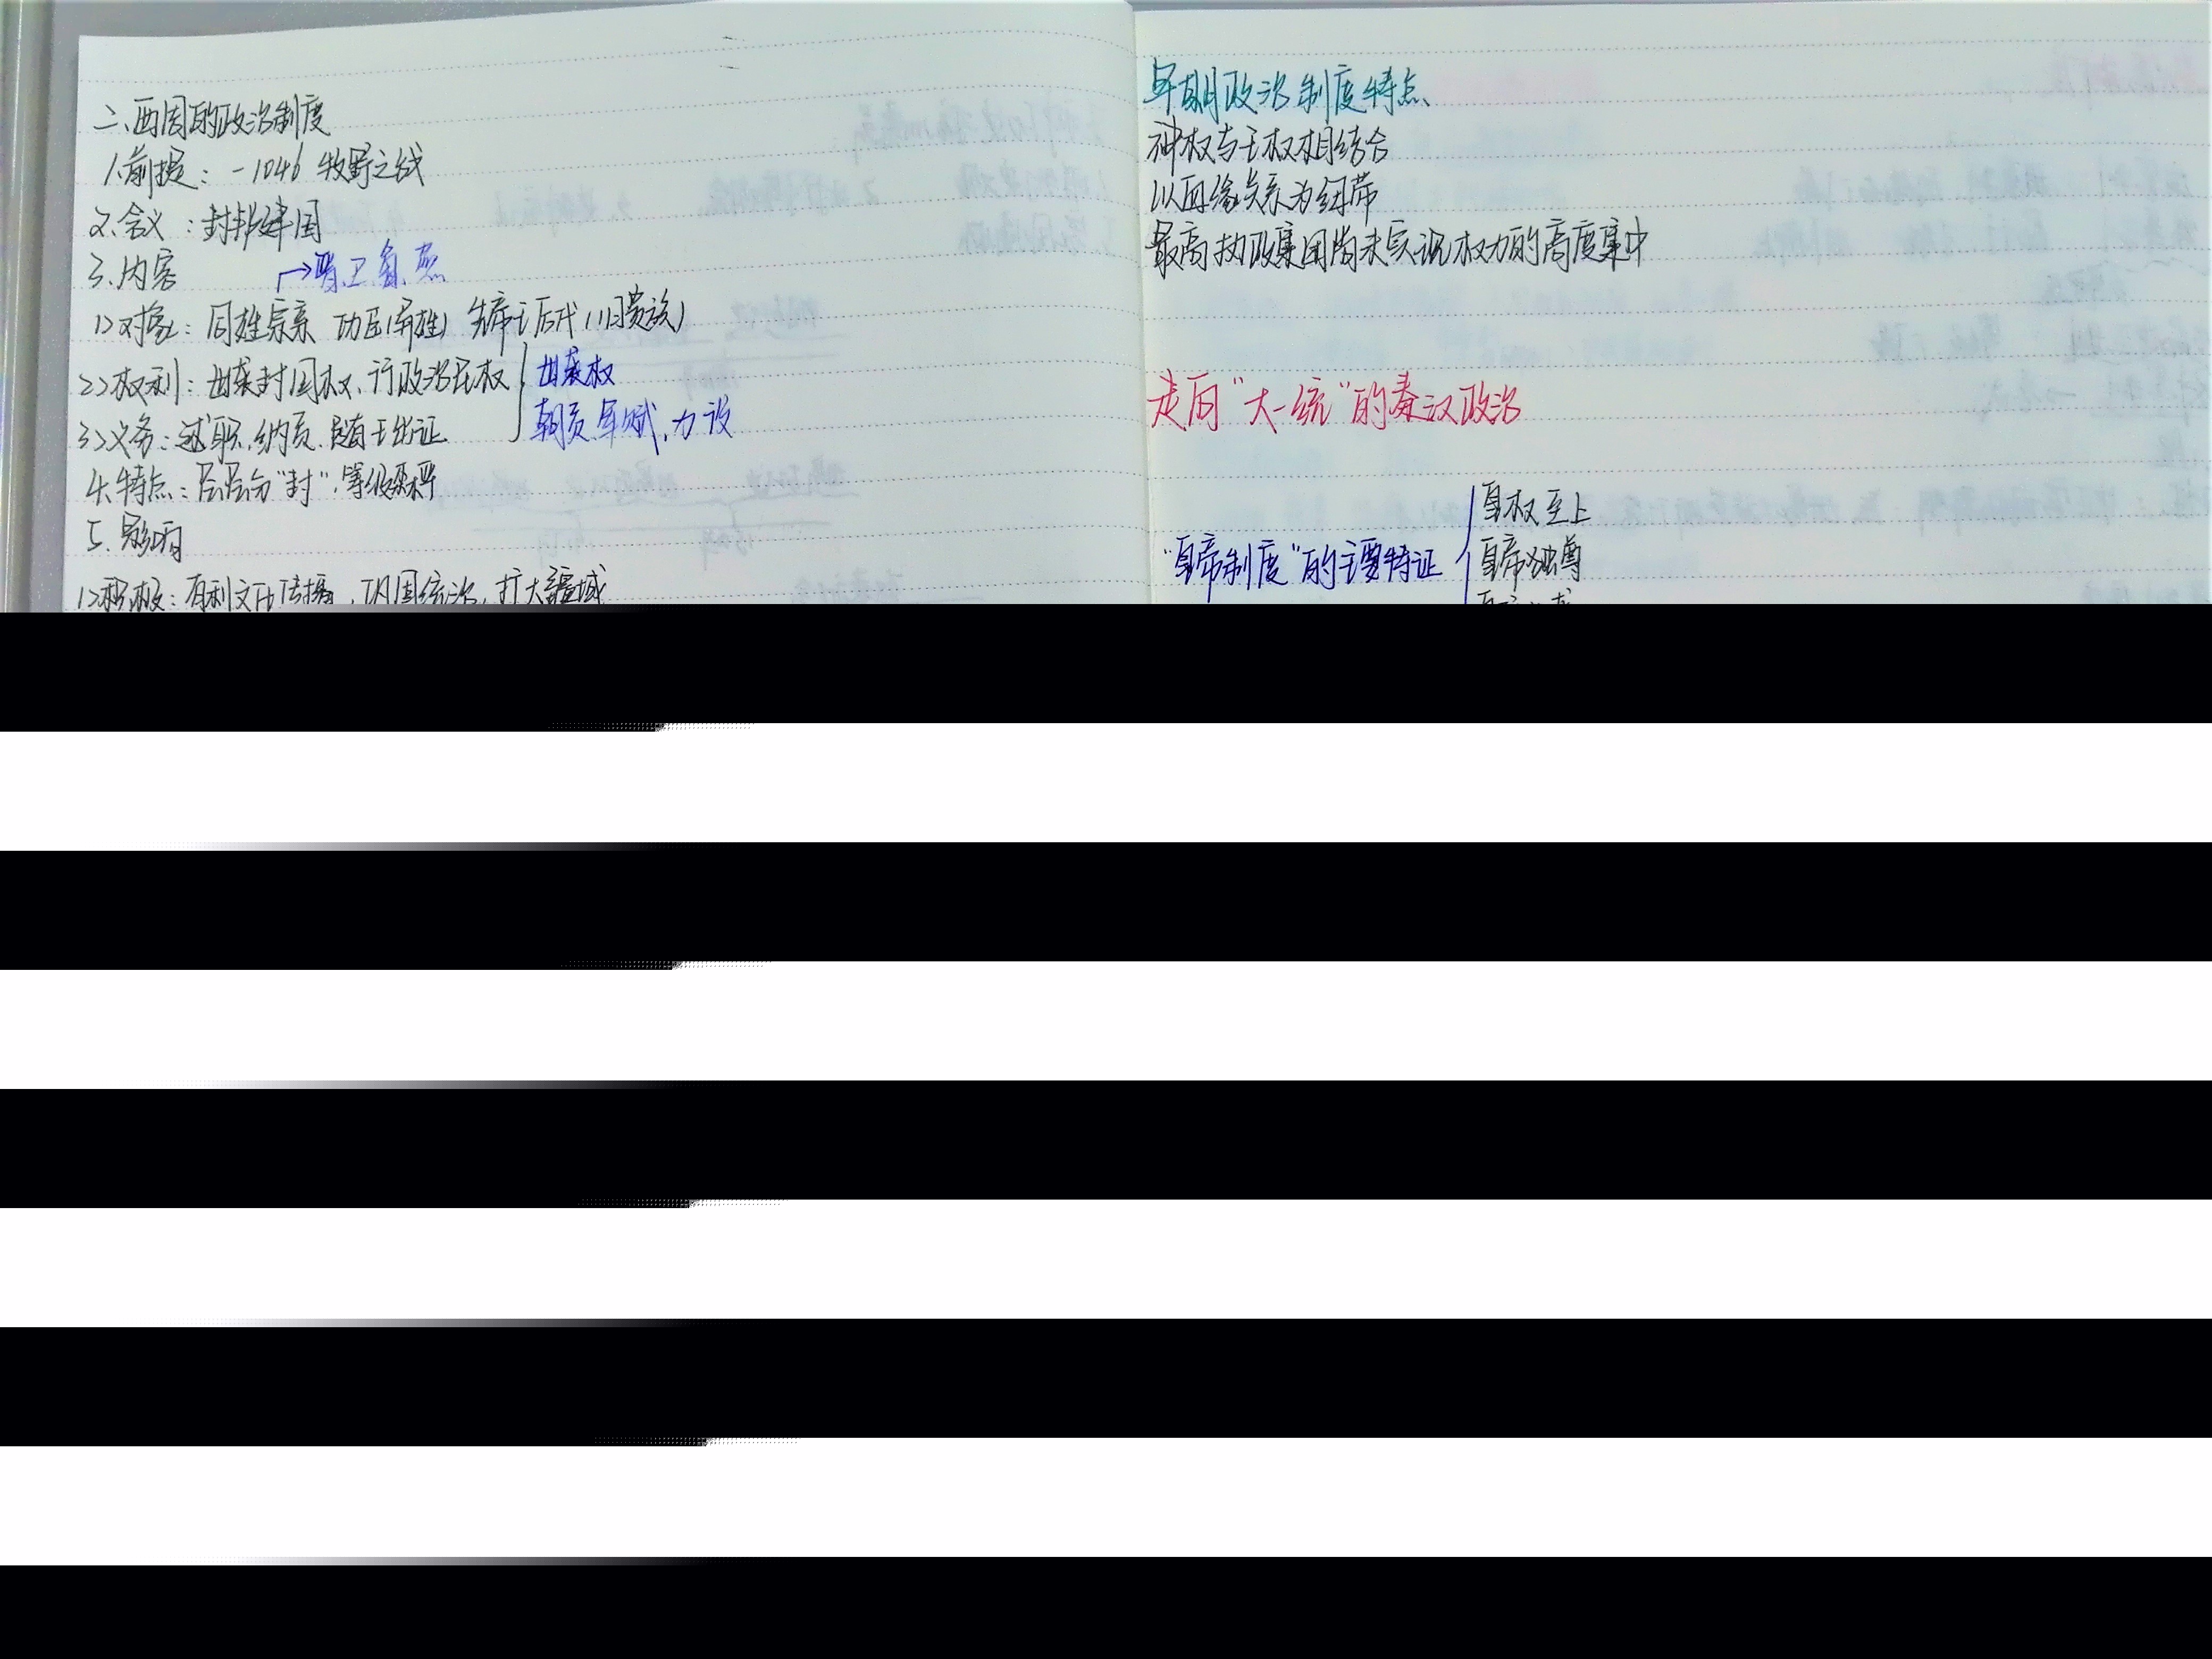 二、西周的政治制度
1.前提：-1046 牧野之战
2.含义：封邦建国
3.内容
→晋.卫.鲁.燕
1>对象：同姓宗亲 功臣(异姓) 先帝王后代(旧贵族)
2>权利：世袭封国权、行政治民权
世袭权
3>义务：述职.纳贡.随王出征
朝贡 军赋.力役
4.特点：层层分"封".等级森严
5.影响
1>积极：有利文化传播，巩固统治，扩大疆域
早期政治制度特点、
神权与王权相结合
以血缘关系为纽带
最高执政集团尚未实现权力的高度集中
走向"大一统"的秦汉政治
"皇帝制度"的主要特征
皇权至上
皇帝独尊